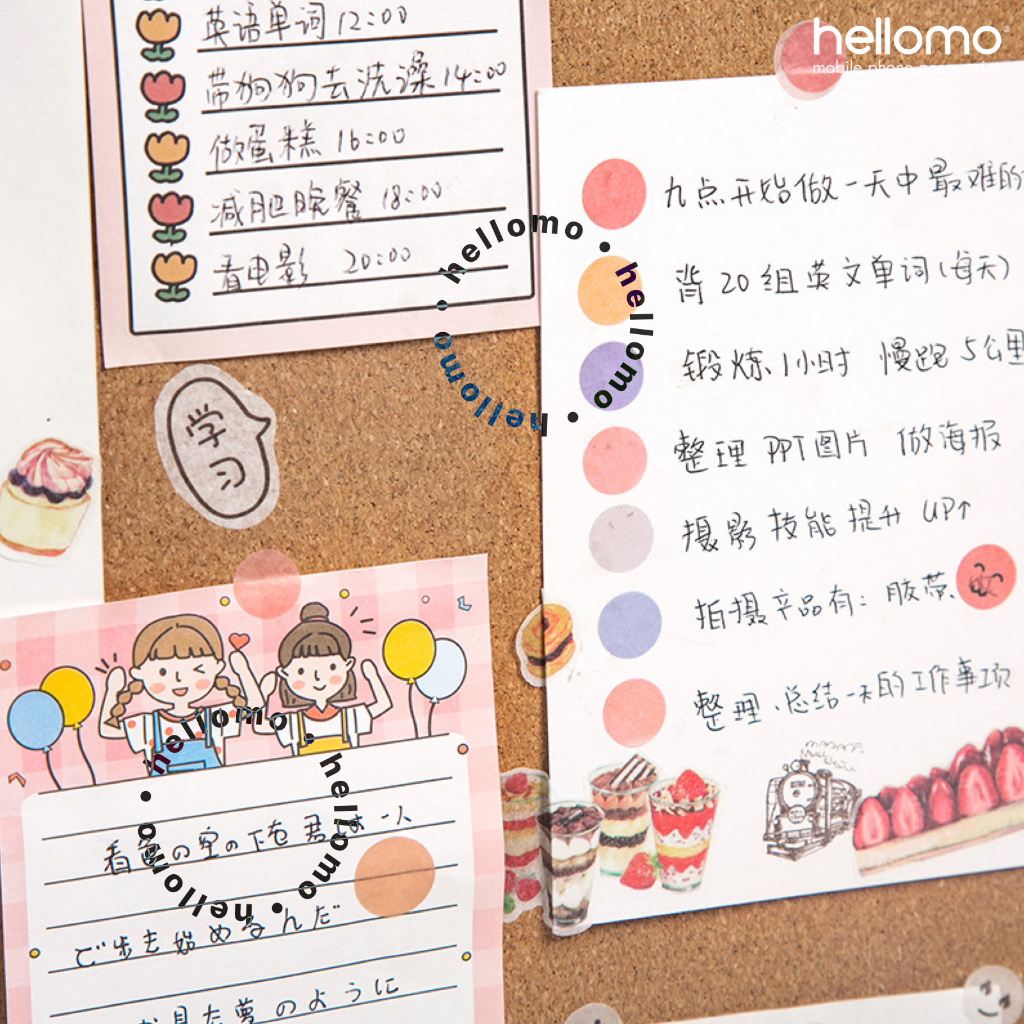 英语单词 12:00
带狗狗去洗澡 14:00
做蛋糕 16:00
减肥晚餐 18:00
看电影 20:00
hellomo
hellomo • hellomo • hellomo •
九点开始做一天中最难的
背 20 组英文单词(每天)
锻炼 1小时 慢跑 5公里
整理 PPT图片 做海报
摄影技能提升 UP↑
拍摄产品有: 胶带
整理、总结一天的工作事项
学
习
hellomo • hellomo • hellomo •
の空の下を 君は一人
で歩き始めるんだ
見た夢のように